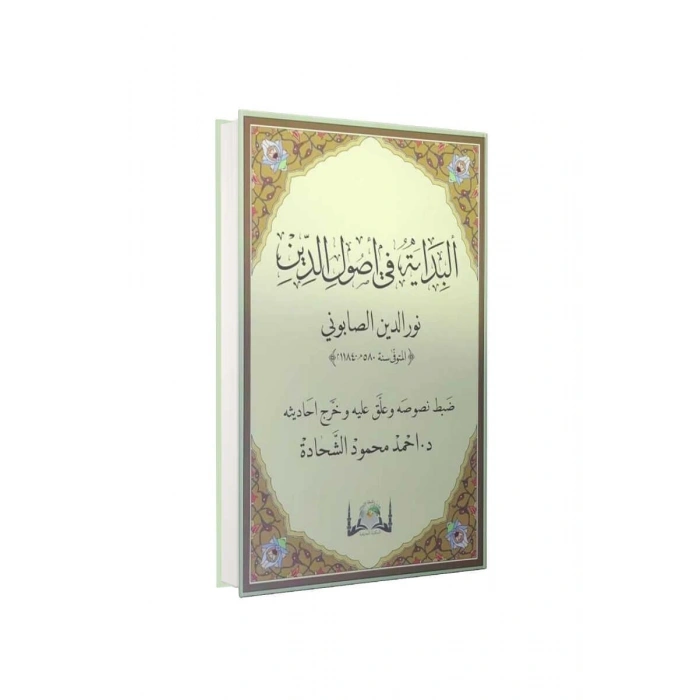 أَلْبِدَايَةُ فِي أُصُولِ الدِّينِ
نور الدين الصابوني
﴿المتوفى سنة ٥٨٠هـ-١١٨٤م﴾
ضَبط نصوصه وعلَّق عليه وخرَّج احاديثه
د. احمد محمود الشَّحادة